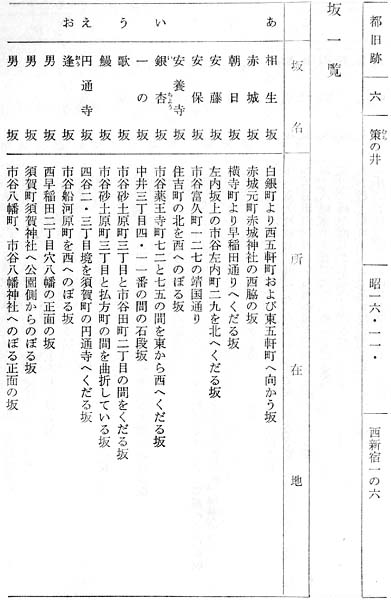 都旧跡 六 策の井 昭一六・一一・ 西新宿一の六
坂一覧
坂名 所在地
あ 相生坂 白銀町より西五軒町および東五軒町へ向かう坂
赤城坂 赤城元町赤城神社の西脇の坂
朝日坂 横寺町より早稲田通りへくだる坂
安藤坂 左内坂上の市谷左内町二九を北へくだる坂
安保坂 市谷富久町一二七の靖国通り
安養寺坂 住吉町の北を西へのぼる坂
い 銀杏坂 市谷薬王寺町七二と七五の間を東から西へくだる坂
一の坂 中井二丁目四・一一番の間の石段坂
う 歌坂 市谷砂土原町三丁目と市谷田町二丁目の間をくだる坂
鰻坂 市谷砂土原町三丁目と払方町の間を曲折している坂
え 円通寺坂 四谷二・三丁目境を須賀町の円通寺へくだる坂
お 逢坂 市谷船河原町を西へのぼる坂
男坂 西早稲田二丁目穴八幡の正面の坂
男坂 須賀町須賀神社へ公園側からのぼる坂
男坂 市谷八幡町、市谷八幡神社へのぼる正面の坂